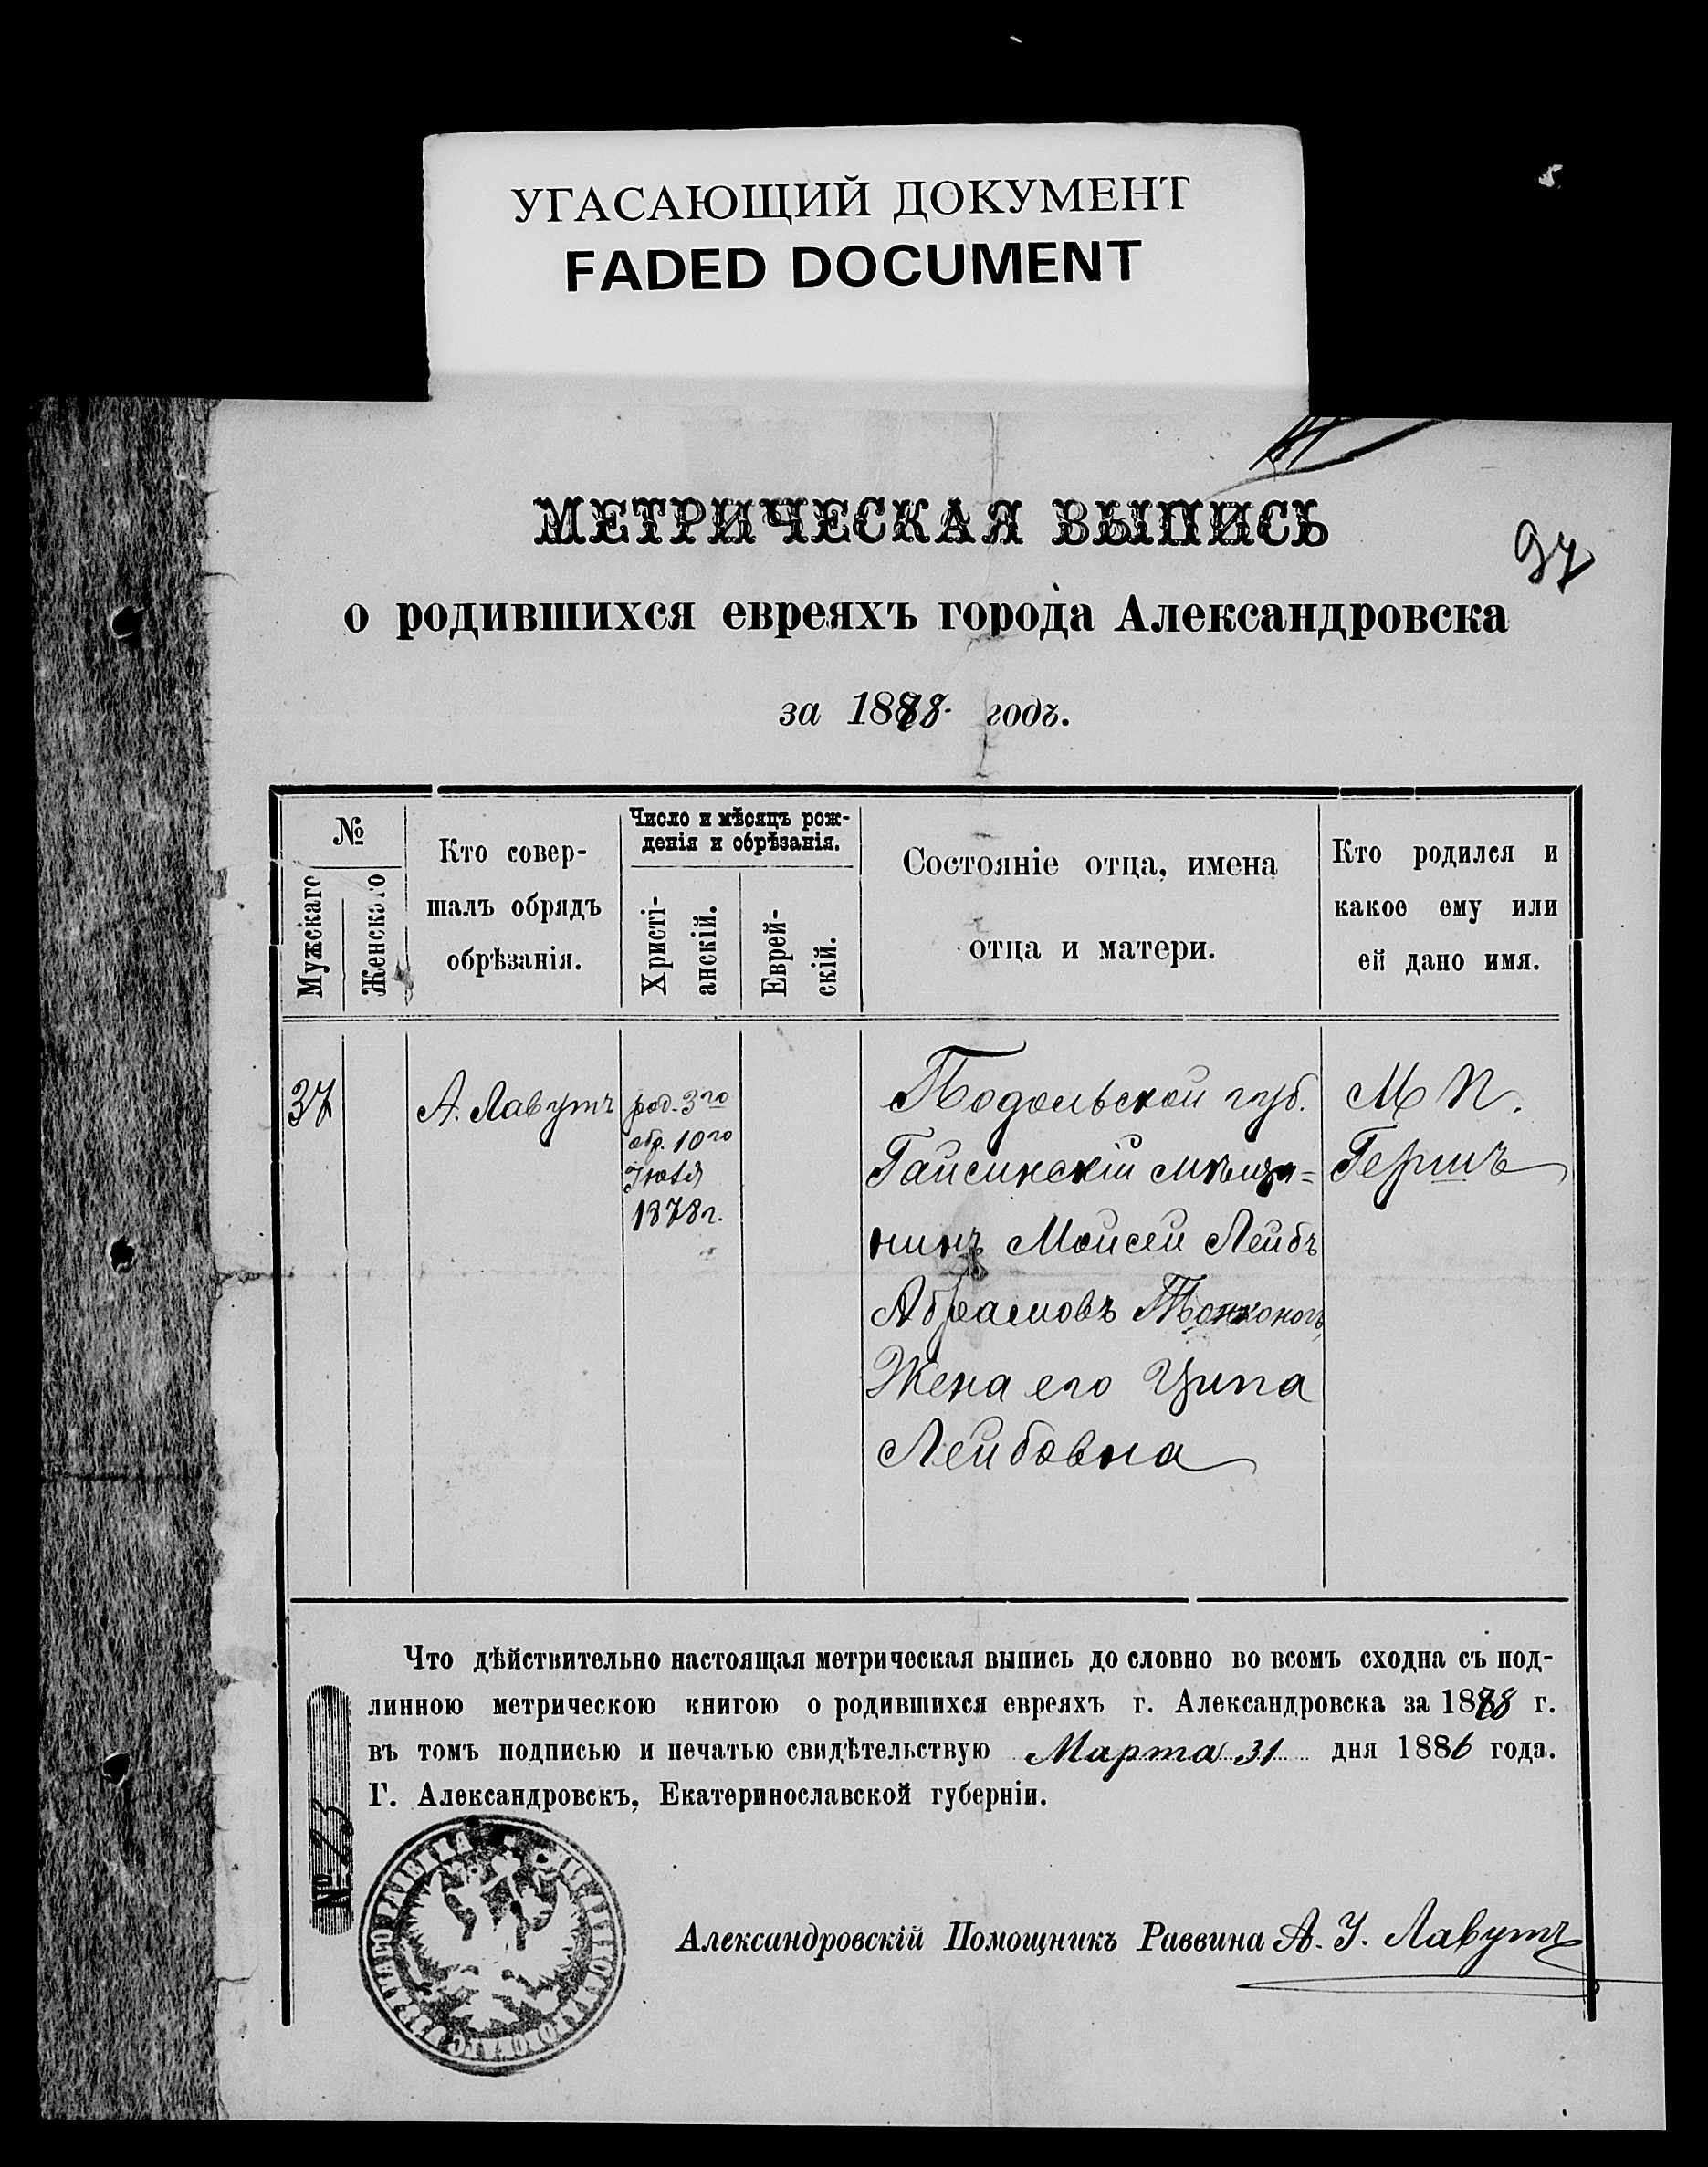 УГАСАЮЩИЙ ДОКУМЕНТ
FADED DOCUMENT
МЕТРИЧЕСКАЯ ВЫПИСЬ
97
о родившихся евреяхъ города Александровска
за 1878 годъ.
№
Мужскаго
Женскаго
Кто совер-
шалъ обрядъ
обрѣзанія.
Число и мѣсяцъ рож-
денія и обрѣзанія.
Христі-
анскій.
Еврей-
скій.
Состояніе отца, имена
отца и матери.
Кто родился и
какое ему или
ей дано имя.
37
А. Лавутъ
род. 3го
обр. 10го
1878 г.
Подольской губ.
Гайсинскій мѣща=
нинъ Мойсей Лейбъ
Абрамовъ Тонконогъ,
Жена его Ципа
Лейбовна
М П.
Гершъ
Что дѣйствительно настоящая метрическая выпись до словно во всемъ сходна съ под-
линною метрическою книгою о родившихся евреяхъ г. Александровска за 1878 г.
въ томъ подписью и печатью свидѣтельствую Марта 31 дня 1886 года.
Г. Александровскъ, Екатеринославской губерніи.
№ 23
Александровскій Помощникъ Раввина А. У. Лавутъ